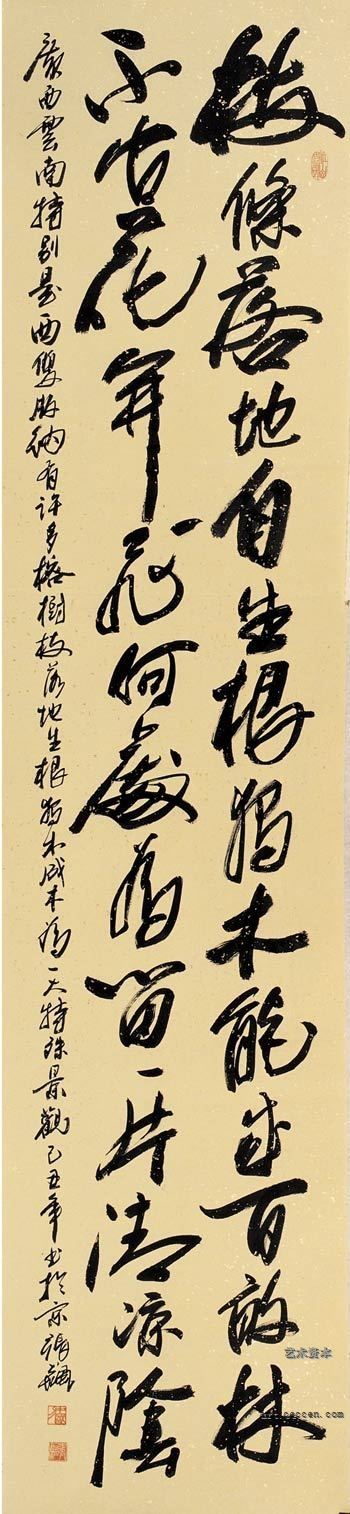 枝條落地自生根獨木能成百畝林
不花飛何處為留一片清涼陰
廣西雲南特別是西雙版納有許多榕樹枝落地生根獨木成木為一大特殊景觀己丑年書於京張
艺术资本
artcccen.com